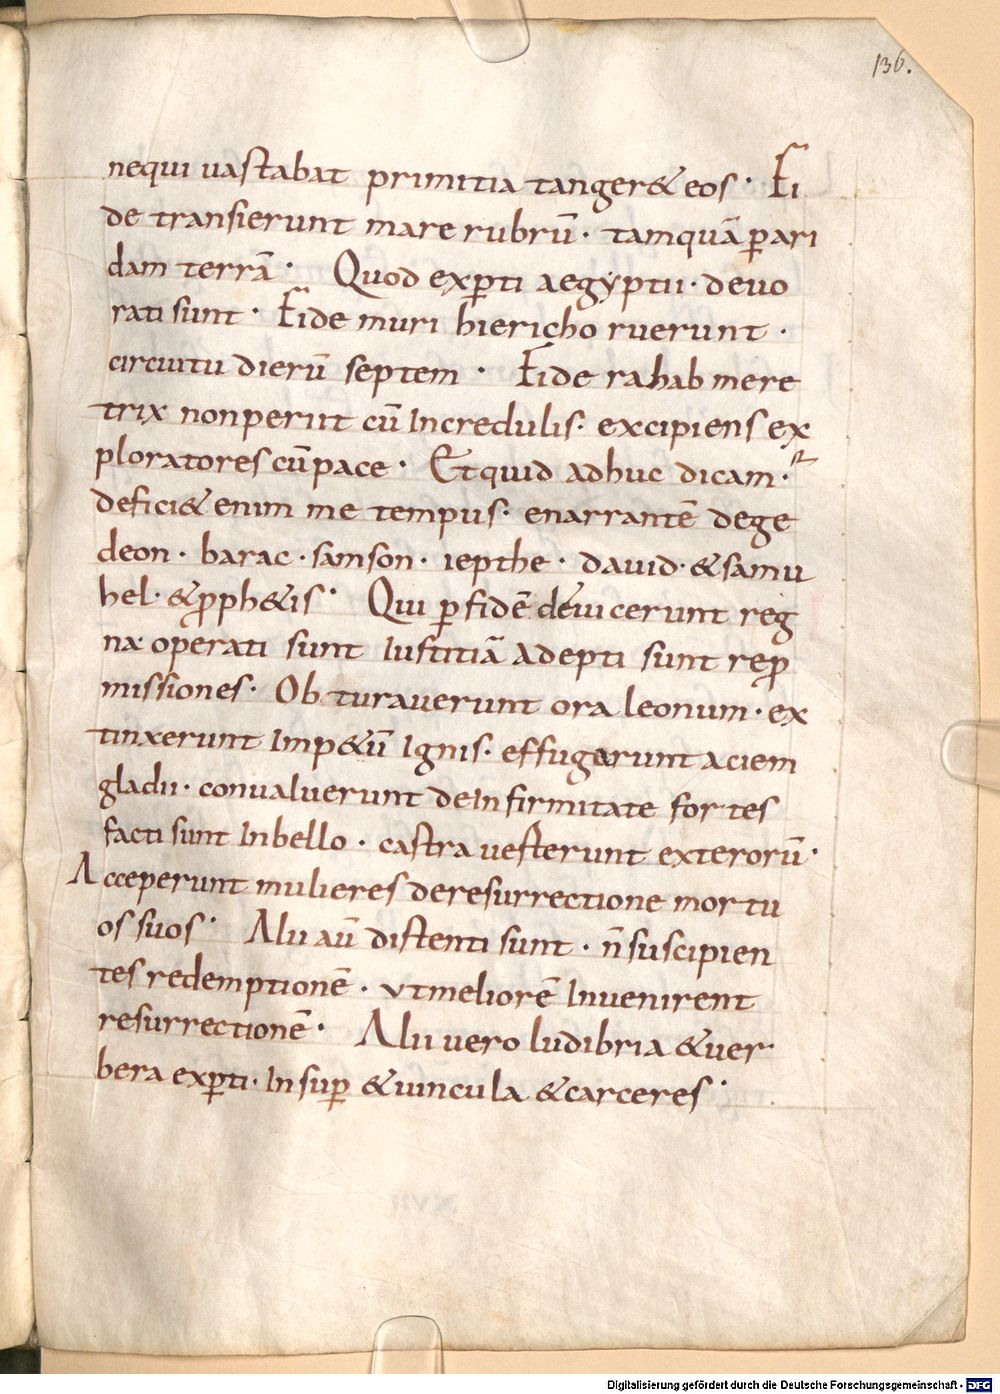 136.
nequi vastabat primitia tanger& eos · Fi
de transierunt mare rubrū · tamquā ꝑari
dam terrā · Quod exꝑti aegyptii · devo
rati sunt · Fide muri hiericho ruerunt ·
circuitu dierū septem · Fide rahab mere
trix nonperiit cū Incredulis · excipiens ex
ploratores cūpace · Et quid adhuc dicam ·
defici& enim me tempus · enarrantē dege
deon · barac · samson · iepthe · david · & samu
hel · & ꝓph&is · Qui ꝑ fidē devicerunt reg
na operati sunt Iustitiā adepti sunt reꝓ
missiones · Obturaverunt ora leonum · ex
tinxerunt Imp&ū Ignis · effugerunt aciem
gladii · convaluerunt deInfirmitate fortes
facti sunt Inbello · castra vesterunt exterorū ·
Acceperunt mulieres deresurrectione mortu
os suos · Alii aū distenti sunt · n̄ suscipien
tes redemptionē · ut meliorē Invenirent
resurrectionē · Alii vero ludibria & ver
bera exꝑti · Insuꝑ & vincula & carceres ·
Digitalisierung gefördert durch die Deutsche Forschungsgemeinschaft - DFG